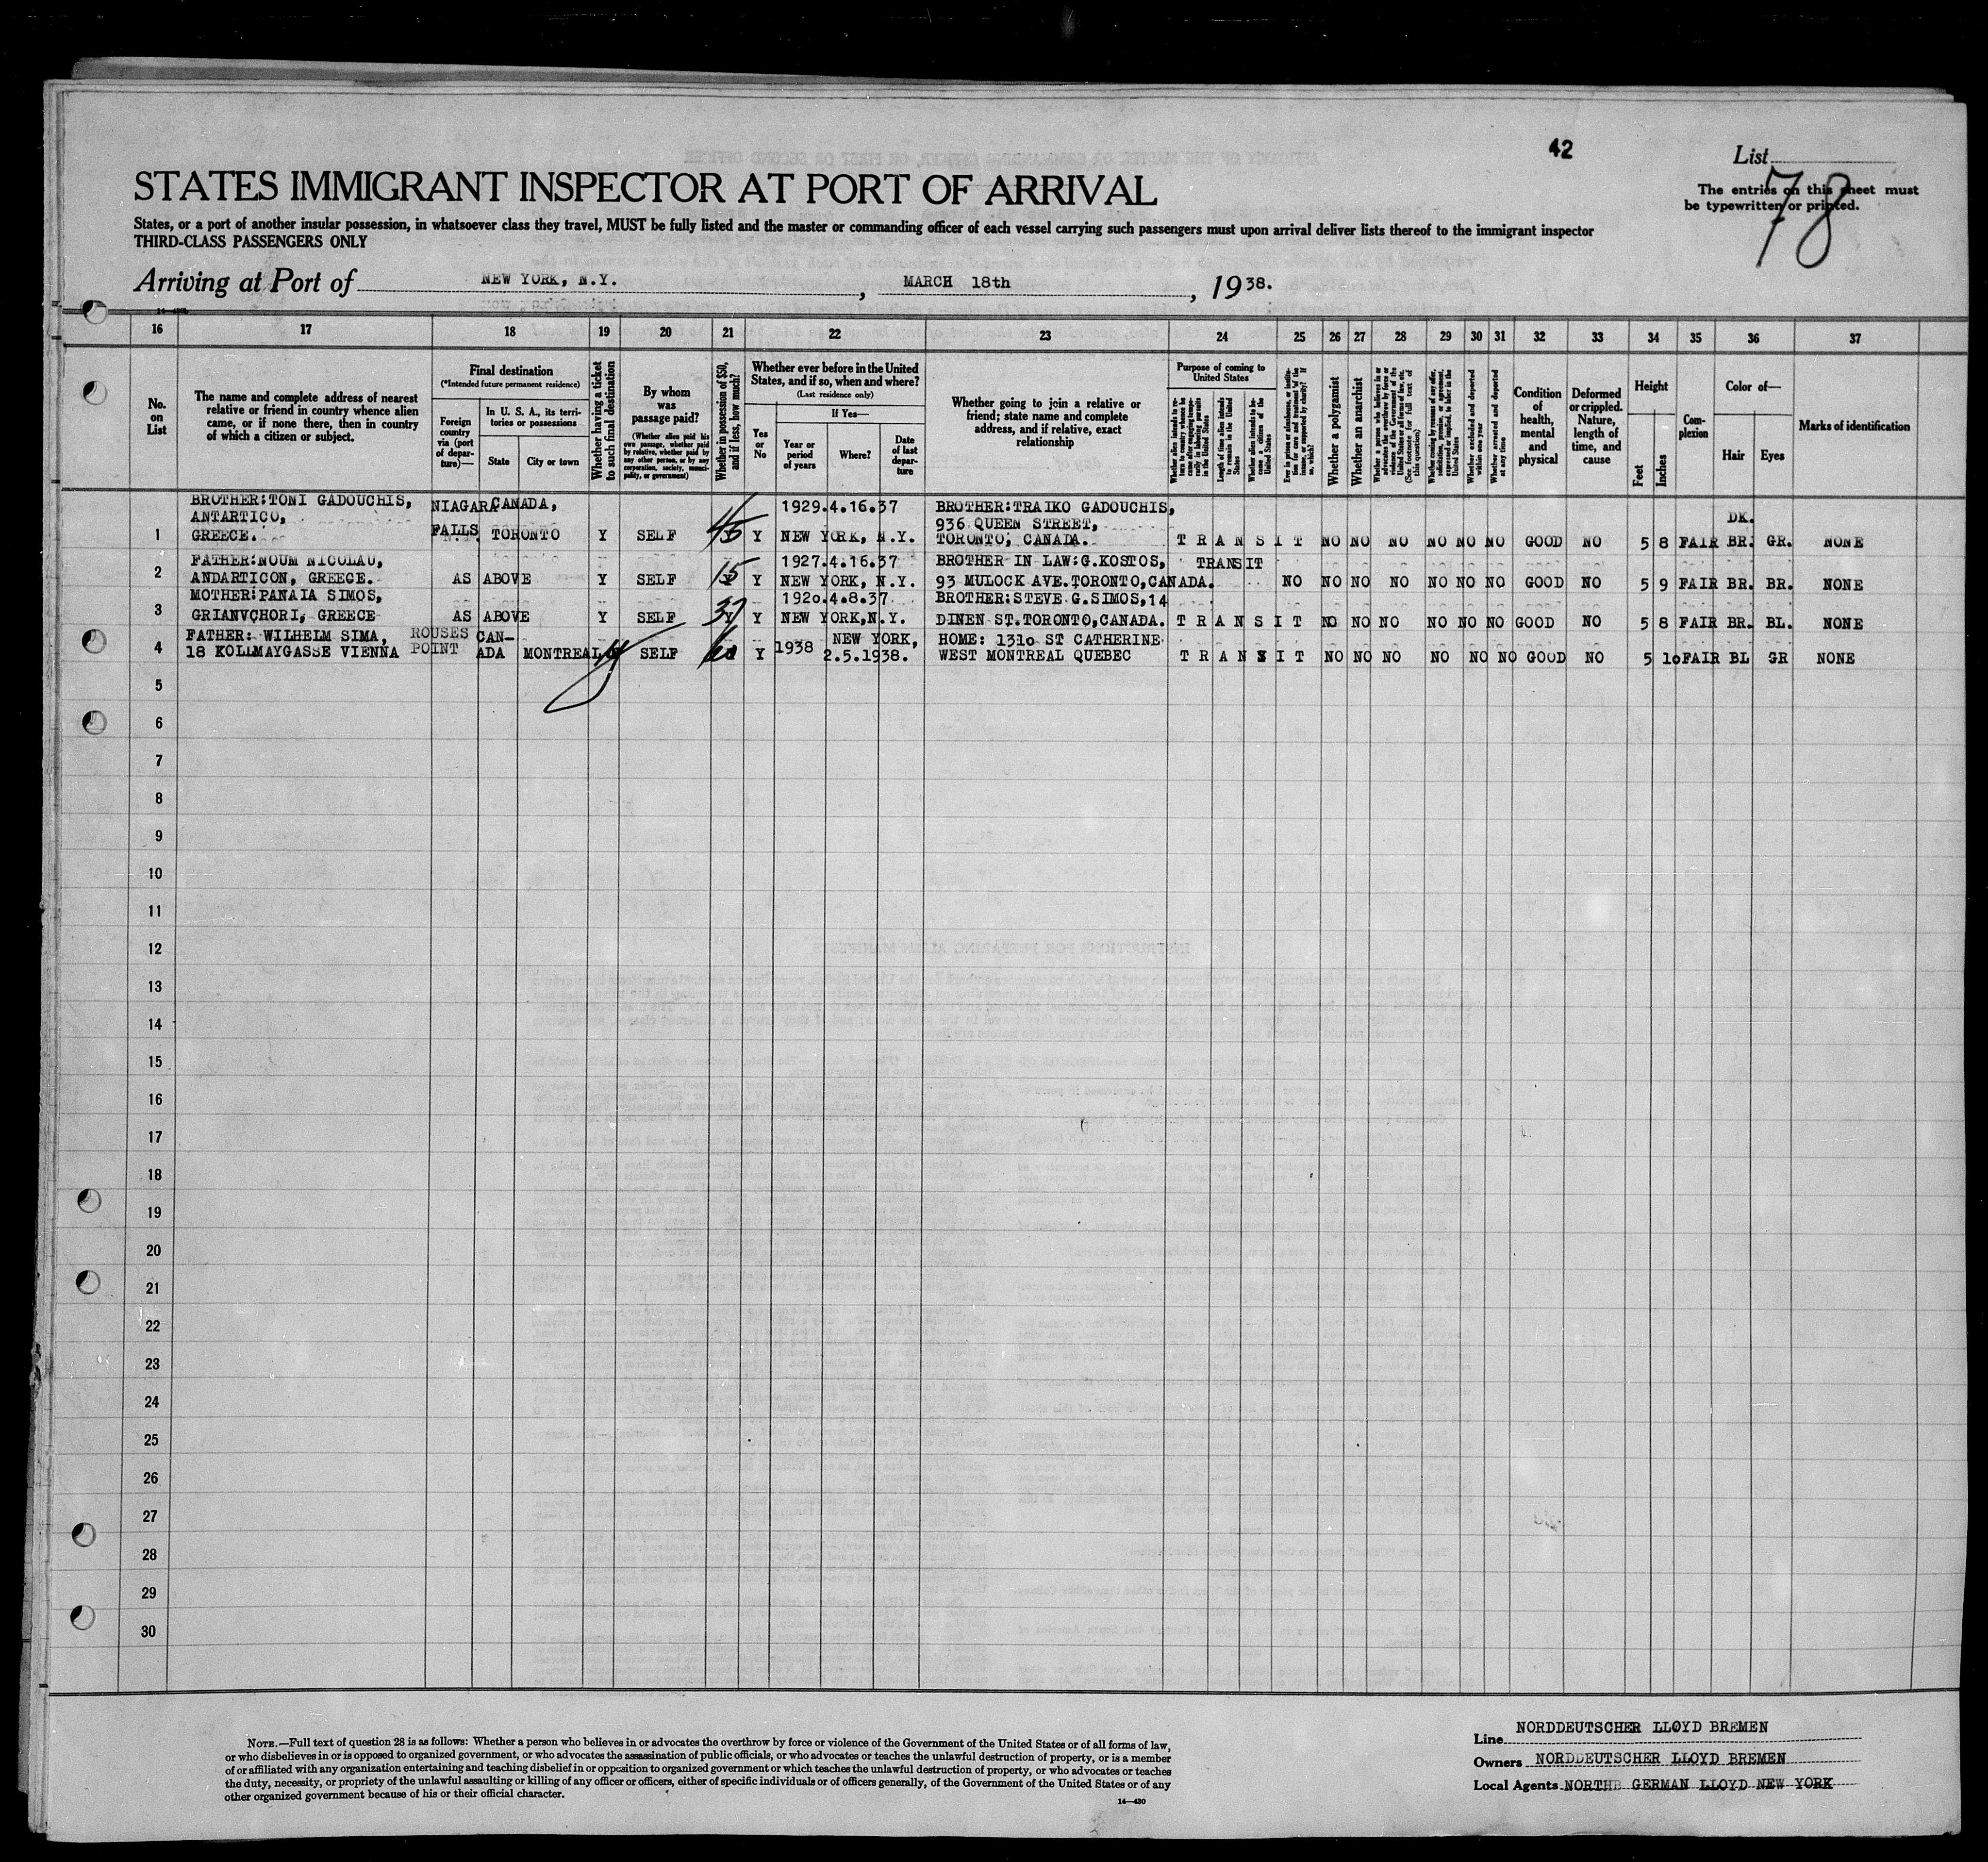 42
List
78
The entries on this sheet must
be typewritten or printed.
STATES IMMIGRANT INSPECTOR AT PORT OF ARRIVAL
States, or a port of another insular possession, in whatsoever class they travel, MUST be fully listed and the master or commanding officer of each vessel carrying such passengers must upon arrival deliver lists thereof to the immigrant inspector
THIRD-CLASS PASSENGERS ONLY
Arriving at Port of NEW YORK, N.Y., MARCH 18th, 1938.
16 17 18 19 20 21 22 23 24 25 26 27 28 29 30 31 32 33 34 35 36 37
No. on List
The name and complete address of nearest relative or friend in country whence alien came, or if none there, then in country of which a citizen or subject.
Final destination
(*Intended future permanent residence)
Foreign country via (port of departure)—
In U. S. A., its territories or possessions
State
City or town
Whether having a ticket to such final destination
By whom was passage paid?
(Whether alien paid his own passage, whether paid by relative, whether paid by any other person, or by any corporation, society, municipality, or government)
Whether in possession of $50, and if less, how much?
Whether ever before in the United States, and if so, when and where?
(Last residence only)
Yes or No
If Yes—
Year or period of years
Where?
Date of last departure
Whether going to join a relative or friend; state name and complete address, and if relative, exact relationship
Purpose of coming to United States
Length of time alien intends to remain in the United States
Whether alien intends to become a citizen of the United States
Whether a polygamist
Whether an anarchist
(See footnote for full text of this question)
Whether excluded and deported within one year
Whether arrested and deported at any time
Condition of health, mental and physical
Deformed or crippled. Nature, length of time, and cause
Height
Feet
Inches
Complexion
Color of—
Hair
Eyes
Marks of identification
1 BROTHER:TONI GADOUCHIS, ANTARTICO, GREECE. NIAGARA FALLS CANADA, TORONTO Y SELF 45 Y 1929.4.16.37 NEW YORK, N.Y. BROTHER:TRAIKO GADOUCHIS, 936 QUEEN STREET, TORONTO, CANADA. TRANSIT NO NO NO NO NO NO GOOD NO 5 8 FAIR DK. BR. GR. NONE
2 FATHER:NOUM NICOLAU, ANDARTICON, GREECE. AS ABOVE Y SELF 15 Y 1927.4.16.37 NEW YORK, N.Y. BROTHER IN LAW:G.KOSTOS, 93 MULOCK AVE.TORONTO,CANADA. TRANSIT NO NO NO NO NO NO NO GOOD NO 5 9 FAIR BR. BR. NONE
3 MOTHER:PANAIA SIMOS, GRIANVCHORI, GREECE AS ABOVE Y SELF 37 Y 1920.4.8.37 NEW YORK,N.Y. BROTHER:STEVE G.SIMOS,14 DINEN ST.TORONTO,CANADA. TRANSIT NO NO NO NO NO NO GOOD NO 5 8 FAIR BR. BL. NONE
4 FATHER: WILHELM SIMA, 18 KOLLMAYGASSE VIENNA ROUSES POINT CAN-ADA MONTREAL SELF Y 1938 NEW YORK, 2.5.1938. HOME: 1310 ST CATHERINE WEST MONTREAL QUEBEC TRANSIT NO NO NO NO NO NO GOOD NO 5 10 FAIR BL GR NONE
5
6
7
8
9
10
11
12
13
14
15
16
17
18
19
20
21
22
23
24
25
26
27
28
29
30
NOTE.—Full text of question 28 is as follows: Whether a person who believes in or advocates the overthrow by force or violence of the Government of the United States or of all forms of law,
or who disbelieves in or is opposed to organized government, or who advocates the assassination of public officials, or who advocates or teaches the unlawful destruction of property, or is a member
of or affiliated with any organization entertaining and teaching disbelief in or opposition to organized government or which teaches the unlawful destruction of property, or who advocates or teaches
the duty, necessity, or propriety of the unlawful assaulting or killing of any officer or officers, either of specific individuals or of officers generally, of the Government of the United States or of any
other organized government because of his or their official character.
14—430
Line NORDDEUTSCHER LLOYD BREMEN
Owners NORDDEUTSCHER LLOYD BREMEN
Local Agents NORTH GERMAN LLOYD NEW YORK